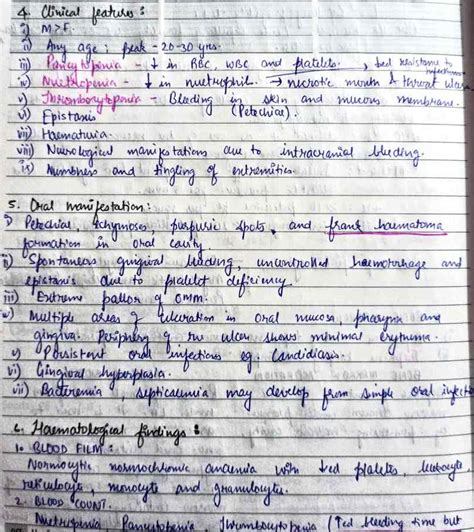 4. Clinical features :
i) M>F.
ii) Any age ; peak - 20-30 yrs.
iii) Pancytopenia - ↓ in RBC, WBC and platelets. ↓ed resistance to infections
iv) Neutropenia - ↓ in neutrophil. → necrotic mouth & throat ulcers
v) Thrombocytopenia - Bleeding in skin and mucous membrane.
(Petechiae).
vi) Epistaxis
vii) Haematuria.
viii) Neurological manifestations due to intracranial bleeding.
ix) Numbness and tingling of extremities.
5. Oral manifestation :
i) Petechiae, echymoses, purpuric spots, and frank haematoma
formation in oral cavity.
ii) Spontaneous gingival bleeding, uncontrolled haemorrhage and
epistaxis due to platelet deficiency
iii) Extreme pallor of OMM.
iv) Multiple areas of ulceration in oral mucosa, pharynx and
gingiva. Periphery of the ulcer shows minimal erythema.
v) Persistent oral infections eg. Candidiasis.
vi) Gingival hyperplasia.
vii) Bacteremia, septicaemia may develop from simple oral infectio
6. Haematological findings :
1. BLOOD FILM :
Normocytic normochromic anaemia with ↓ed platelets, leukocyte
reticulocyte, monocyte and granulocytes.
2. BLOOD COUNT.
Neutropenia, Pancytopenia, Thrombocytopenia (↑ed bleeding time but